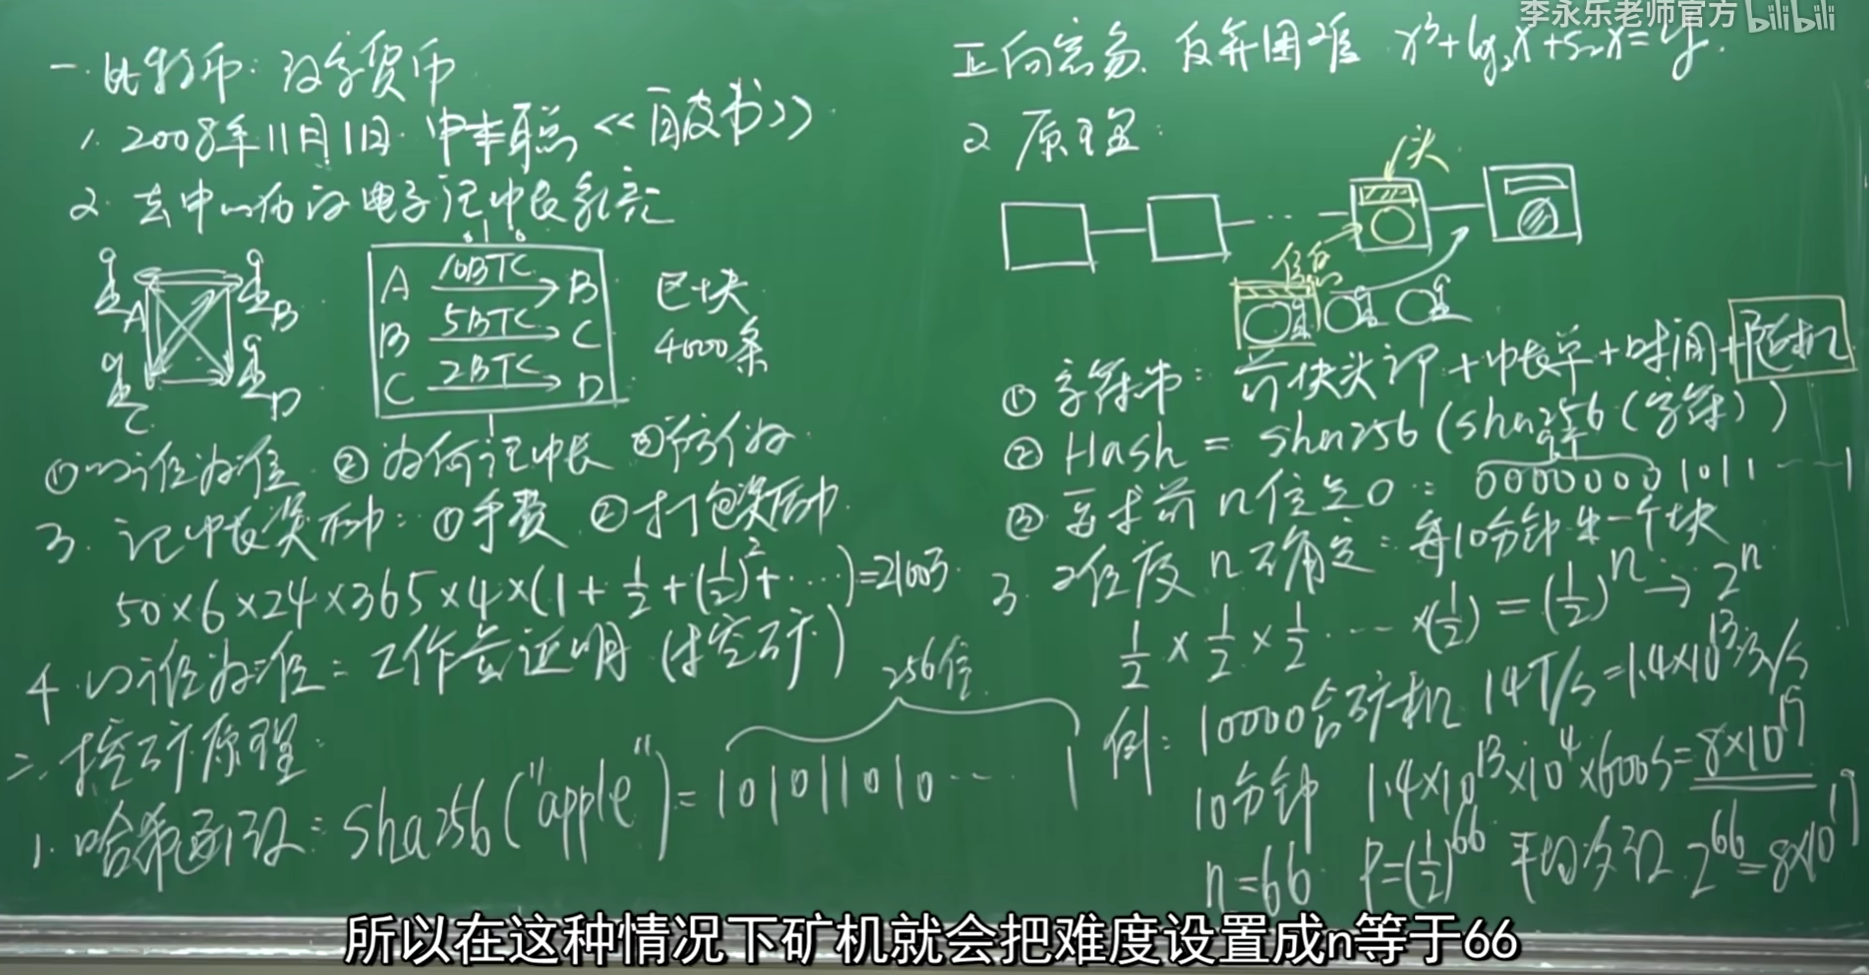 李永乐老师官方 bilibili
一. 比特币: 数字货币
1. 2008年11月1日 中本聪 <<白皮书>>
2. 去中心化的电子记帐系统
A B C D
A 10BTC B
B 5BTC C
C 2BTC D
区块
4000条
①以谁为准 ②为何记帐 ③防伪
3. 记帐奖励: ①手费 ②打包奖励
50×6×24×365×4×(1+1/2+(1/2)²+……)=2100万
4. 以谁为准: 工作量证明 (挖矿)
二. 挖矿原理:
1. 哈希函数: sha256("apple")=101011010…… 1
256位
正向容易 反算困难 x³+log₂x+5√x=y.
2 原理:
头
①字符串: 前块头部+帐单+时间+随机
②Hash = sha256(sha256(字符))
③要求前n位是0: 00000001011 …… 1
3. 难度n的确定: 每10分钟出一个块
1/2×1/2×1/2……×(1/2)=(1/2)ⁿ→2ⁿ
例: 10000台矿机 14T/s=1.4×10¹³次/s
10分钟 1.4×10¹³×10⁴×600s=8×10¹⁹
n=66 P=(1/2)⁶⁶ 平均次数 2⁶⁶=8×10¹⁹
所以在这种情况下矿机就会把难度设置成n等于66